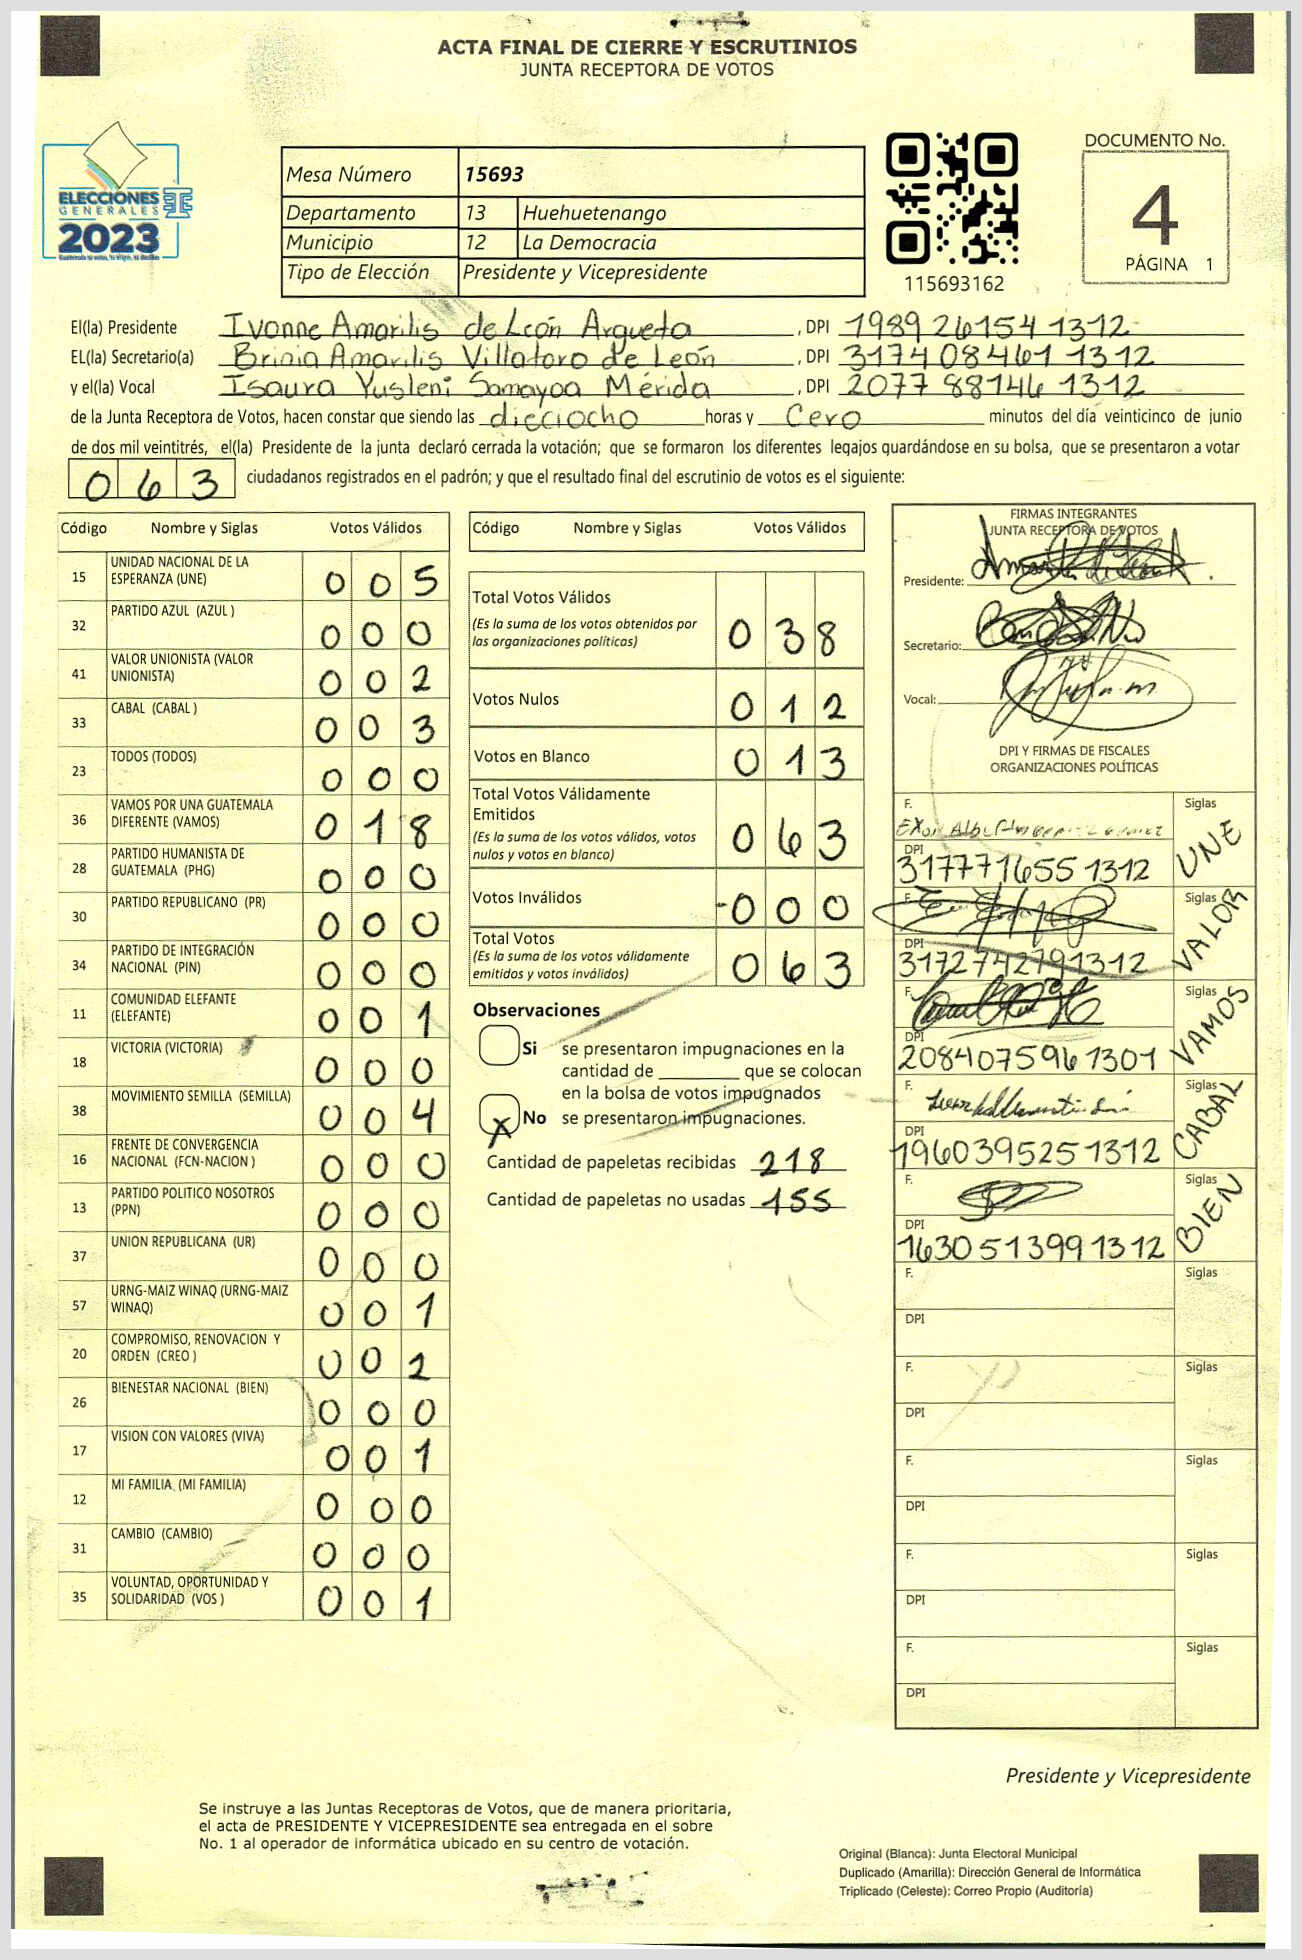 ACTA FINAL DE CIERRE Y ESCRUTINIOS
JUNTA RECEPTORA DE VOTOS
ELECCIONES
GENERALES
2023
Mesa Número 15693
Departamento 13 Huehuetenango
Municipio 12 La Democracia
Tipo de Elección Presidente y Vicepresidente
115693162
DOCUMENTO No.
4
PÁGINA 1
El(la) Presidente Ivonne Amarilis de León Argueta, DPI 1989 26154 1312
EL(la) Secretario(a) Brinia Amarilis Villatoro de León, DPI 3174 08461 1312
y el(la) Vocal Isaura Yusleni Samayoa Mérida, DPI 2077 88146 1312
de la Junta Receptora de Votos, hacen constar que siendo las dieciocho horas y Cero minutos del día veinticinco de junio
de dos mil veintitrés, el(la) Presidente de la junta declaró cerrada la votación; que se formaron los diferentes legajos guardándose en su bolsa, que se presentaron a votar
063 ciudadanos registrados en el padrón; y que el resultado final del escrutinio de votos es el siguiente:
Código Nombre y Siglas Votos Válidos
15 UNIDAD NACIONAL DE LA ESPERANZA (UNE) 005
32 PARTIDO AZUL (AZUL ) 000
41 VALOR UNIONISTA (VALOR UNIONISTA) 002
33 CABAL (CABAL ) 003
23 TODOS (TODOS) 000
36 VAMOS POR UNA GUATEMALA DIFERENTE (VAMOS) 018
28 PARTIDO HUMANISTA DE GUATEMALA (PHG) 000
30 PARTIDO REPUBLICANO (PR) 000
34 PARTIDO DE INTEGRACIÓN NACIONAL (PIN) 000
11 COMUNIDAD ELEFANTE (ELEFANTE) 001
18 VICTORIA (VICTORIA) 000
38 MOVIMIENTO SEMILLA (SEMILLA) 004
16 FRENTE DE CONVERGENCIA NACIONAL (FCN-NACION ) 000
13 PARTIDO POLITICO NOSOTROS (PPN) 000
37 UNION REPUBLICANA (UR) 000
57 URNG-MAIZ WINAQ (URNG-MAIZ WINAQ) 001
20 COMPROMISO, RENOVACION Y ORDEN (CREO ) 002
26 BIENESTAR NACIONAL (BIEN) 000
17 VISION CON VALORES (VIVA) 001
12 MI FAMILIA (MI FAMILIA) 000
31 CAMBIO (CAMBIO) 000
35 VOLUNTAD, OPORTUNIDAD Y SOLIDARIDAD (VOS ) 001
Código Nombre y Siglas Votos Válidos
Total Votos Válidos 038
(Es la suma de los votos obtenidos por
las organizaciones políticas)
Votos Nulos 012
Votos en Blanco 013
Total Votos Válidamente
Emitidos 063
(Es la suma de los votos válidos, votos
nulos y votos en blanco)
Votos Inválidos 000
Total Votos 063
(Es la suma de los votos válidamente
emitidos y votos inválidos)
Observaciones
Si se presentaron impugnaciones en la
cantidad de ________ que se colocan
en la bolsa de votos impugnados
X No se presentaron impugnaciones.
Cantidad de papeletas recibidas 218
Cantidad de papeletas no usadas 155
FIRMAS INTEGRANTES
JUNTA RECEPTORA DE VOTOS
Presidente:
Secretario:
Vocal:
DPI Y FIRMAS DE FISCALES
ORGANIZACIONES POLÍTICAS
F. Siglas UNE
DPI 317771655 1312
F. Siglas VALOR
DPI 3172742791312
F. Siglas VAMOS
DPI 2084075961301
F. Siglas CABAL
DPI 1960395251312
F. Siglas BIEN
DPI 1630513991312
F. Siglas
DPI
F. Siglas
DPI
F. Siglas
DPI
F. Siglas
DPI
F. Siglas
DPI
Presidente y Vicepresidente
Se instruye a las Juntas Receptoras de Votos, que de manera prioritaria,
el acta de PRESIDENTE Y VICEPRESIDENTE sea entregada en el sobre
No. 1 al operador de informática ubicado en su centro de votación.
Original (Blanca): Junta Electoral Municipal
Duplicado (Amarilla): Dirección General de Informática
Triplicado (Celeste): Correo Propio (Auditoría)